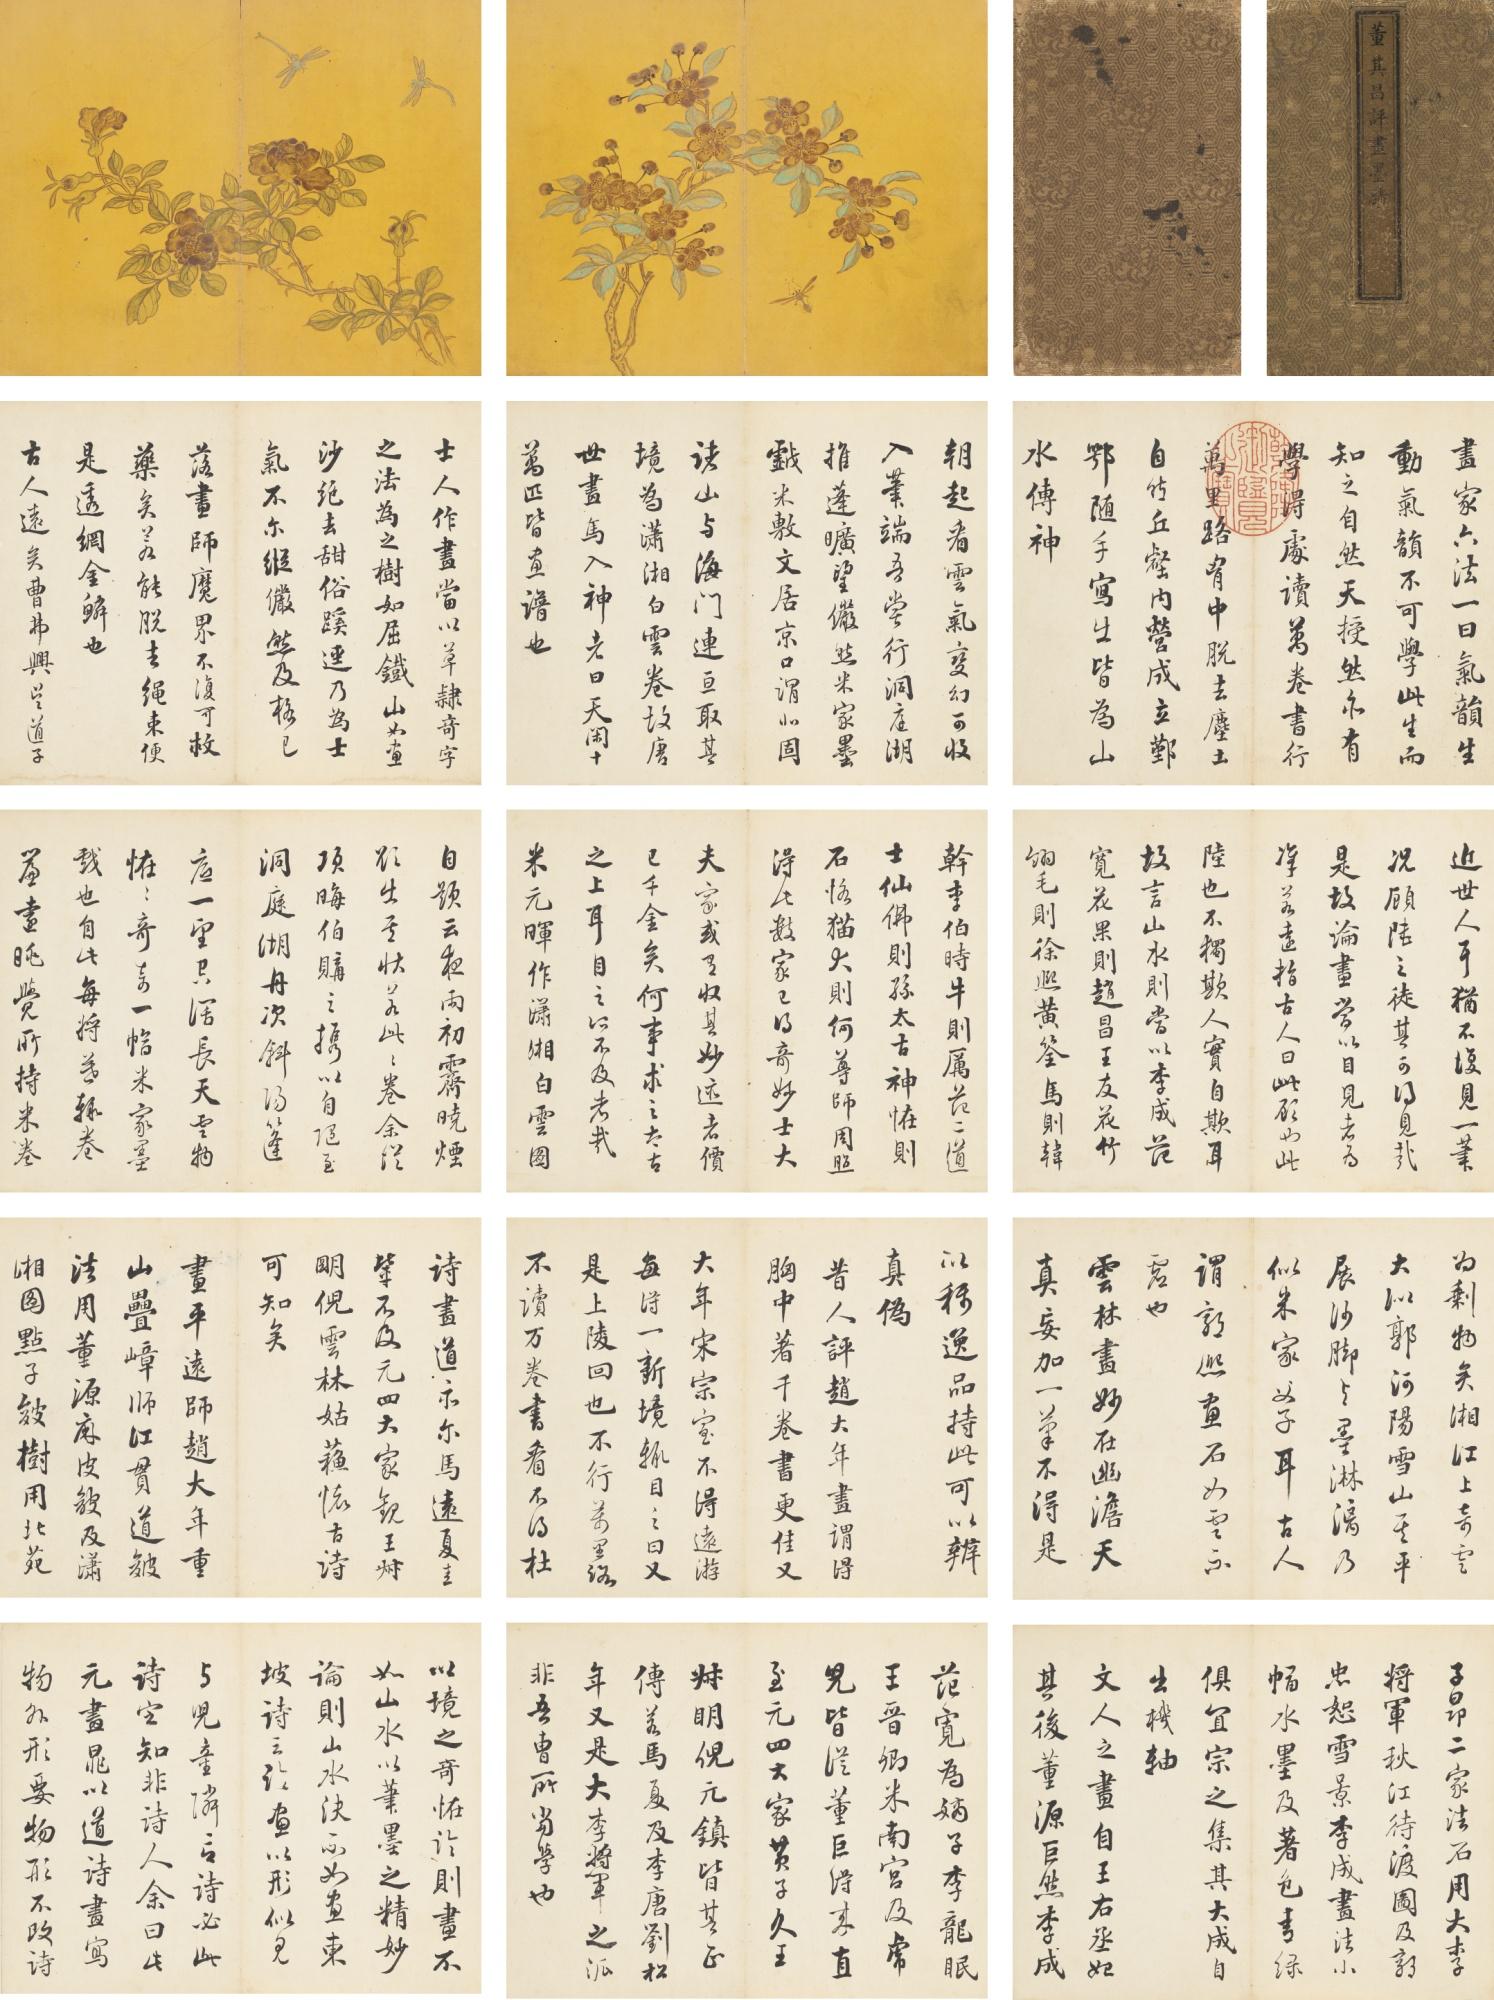 董其昌評畫墨蹟
畫家六法一曰氣韻生
動氣韻不可學此生而
知之自然天授然亦有
學得處讀萬卷書行
萬里路胷中脫去塵土
自然丘壑内營成立鄞
鄂随手寫生皆為山
水傳神
乾隆御覽之寶
朝起看雲氣變幻可收
入筆端吾嘗行洞庭湖
推蓬曠望儼然米家墨
戲米敷文居京口謂北固
諸山与海門連亘取其
境為瀟湘白雲卷故唐
世畫馬入神者曰天閑十
萬匹皆畫譜也
士人作畫當以草隸奇字
之法為之樹如屈鐵山如畫
沙絕去甜俗蹊逕乃為士
氣不尔縱儼然及格已
落畫師魔界不復可救
藥矣若能脫去繩束便
是透網金鱗也
古人遠矣曹弗興吳道子
近世人耳猶不復見一筆
況顧陸之徒其可得見哉
是故論畫當以目見者為
準若遠指古人曰此顧也此
陸也不獨欺人實自欺耳
故言山水則當以李成范
寬花果則趙昌王友花竹
翎毛則徐熙黃筌馬則韓
幹李伯時牛則厲范二道
士仙佛則孫太古神怪則
石恪猫犬則何尊師周照
得此數家已得奇妙士大
夫家或有收其妙迹者價
已千金矣何事求之太古
之上耳目之所不及者哉
米元暉作瀟湘白雲圖
自題云夜雨初霽曉煙
欲出其狀若此此卷余從
項晦伯購之携以自隨至
洞庭湖舟次斜陽篷
底一望空闊長天雲物
怪怪奇奇一幅米家墨
戲也自此每將暮輒卷
簾畫眺覺所持米卷
為剩物矣湘江上奇雲
大似郭河陽雪山其平
展沙脚与墨淋漓乃
似米家父子耳古人
謂郭熙畫石如雲不
虛也
雲林畫妙在幽澹天
真妄加一筆不得是
以稱逸品持此可以辨
真偽
昔人評趙大年畫謂得
胸中著千卷書更佳又
大年宋宗室不得遠游
每得一新境輒目之曰又
是上陵回也不行萬里路
不讀万卷書看不得杜
詩畫道亦尔馬遠夏圭
輩不及元四大家觀王叔
明倪雲林姑蘇懷古詩
可知矣
畫平遠師趙大年重
山疊嶂師江貫道皴
法用董源麻皮皴及瀟
湘圖點子皴樹用北苑
子昂二家法石用大李
將軍秋江待渡圖及郭
忠恕雪景李成畫法小
幅水墨及著色青綠
俱宜宗之集其大成自
出機軸
文人之畫自王右丞始
其後董源巨然李成
范寬為嫡子李龍眠
王晉卿米南宮及虎
兒皆從董巨得來直
至元四大家黃子久王
叔明倪元鎮皆其正
傳若馬夏及李唐劉松
年又是大李將軍之派
非吾曹所當學也
以境之奇怪論則畫不
如山水以筆墨之精妙
論則山水決不如畫東
坡詩云論畫以形似見
与兒童隣言詩必此
詩定知非詩人余曰此
元畫晁以道詩畫寫
物外形要物形不改詩